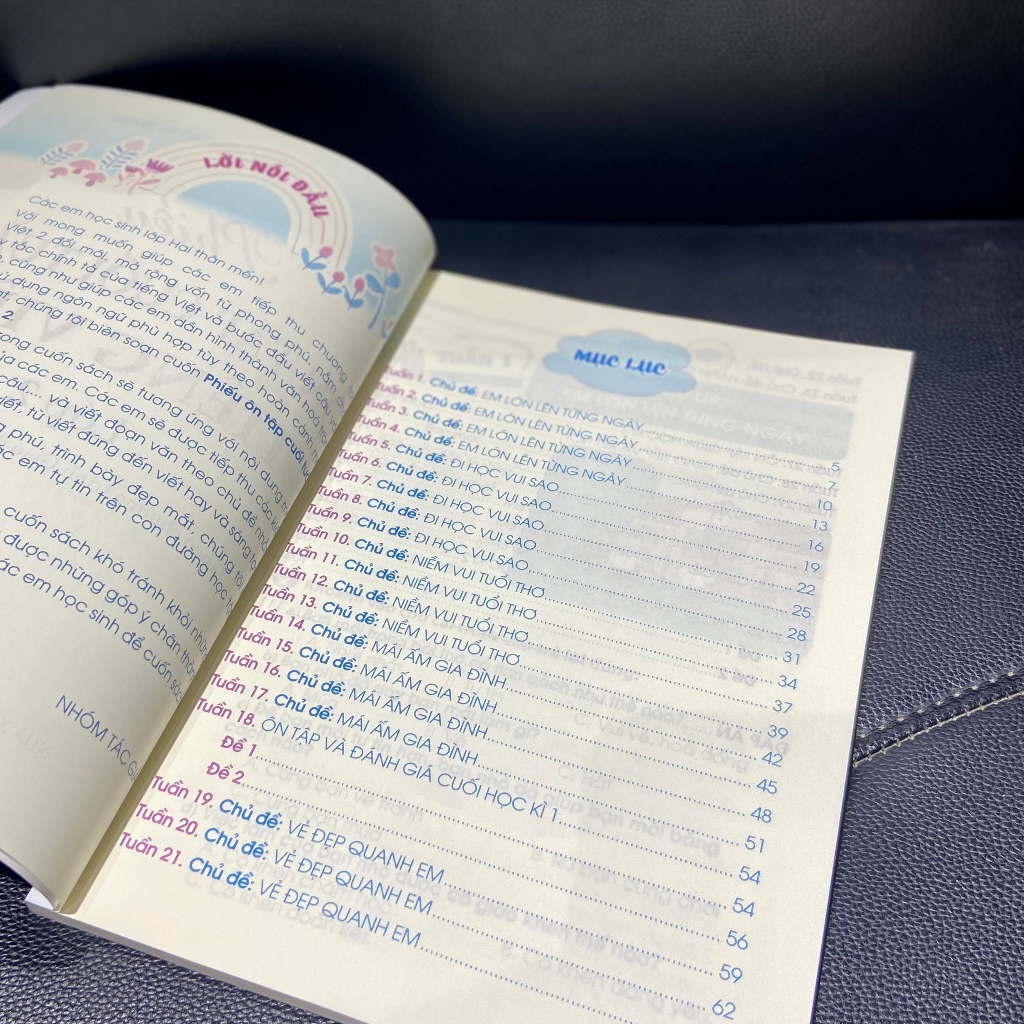 LỜI NÓI ĐẦU
Các em học sinh lớp Hai thân mến!
Với mong muốn giúp các em tiếp thu chương
Việt 2 đổi mới, mở rộng vốn từ phong phú, nắm
tắc chính tả của tiếng Việt và bước đầu viết câu
cũng như giúp các em dần hình thành văn hoá
dụng ngôn ngữ phù hợp tùy theo hoàn cảnh,
chúng tôi biên soạn cuốn Phiếu ôn tập cuối
2.
trong cuốn sách sẽ tương ứng với nội dung
của các em. Các em sẽ được tiếp thu các
câu,... và viết đoạn văn theo chủ đề
từ viết đúng đến viết hay và sáng
phú, trình bày đẹp mắt, chúng tôi
các em tự tin trên con đường học
cuốn sách khó tránh khỏi những
được những góp ý chân thành
các em học sinh để cuốn sách
NHÓM TÁC GIẢ
MỤC LỤC
Tuần 1. Chủ đề: EM LỚN LÊN TỪNG NGÀY 5
Tuần 2. Chủ đề: EM LỚN LÊN TỪNG NGÀY 7
Tuần 3. Chủ đề: EM LỚN LÊN TỪNG NGÀY 10
Tuần 4. Chủ đề: EM LỚN LÊN TỪNG NGÀY 13
Tuần 5. Chủ đề: ĐI HỌC VUI SAO 16
Tuần 6. Chủ đề: ĐI HỌC VUI SAO 19
Tuần 7. Chủ đề: ĐI HỌC VUI SAO 22
Tuần 8. Chủ đề: ĐI HỌC VUI SAO 25
Tuần 9. Chủ đề: ĐI HỌC VUI SAO 28
Tuần 10. Chủ đề: NIỀM VUI TUỔI THƠ 31
Tuần 11. Chủ đề: NIỀM VUI TUỔI THƠ 34
Tuần 12. Chủ đề: NIỀM VUI TUỔI THƠ 37
Tuần 13. Chủ đề: NIỀM VUI TUỔI THƠ 39
Tuần 14. Chủ đề: MÁI ẤM GIA ĐÌNH 42
Tuần 15. Chủ đề: MÁI ẤM GIA ĐÌNH 45
Tuần 16. Chủ đề: MÁI ẤM GIA ĐÌNH 48
Tuần 17. Chủ đề: MÁI ẤM GIA ĐÌNH 51
Tuần 18. ÔN TẬP VÀ ĐÁNH GIÁ CUỐI HỌC KÌ 1 54
Đề 1 54
Đề 2 56
Tuần 19. Chủ đề: VẺ ĐẸP QUANH EM 59
Tuần 20. Chủ đề: VẺ ĐẸP QUANH EM 62
Tuần 21. Chủ đề: VẺ ĐẸP QUANH EM